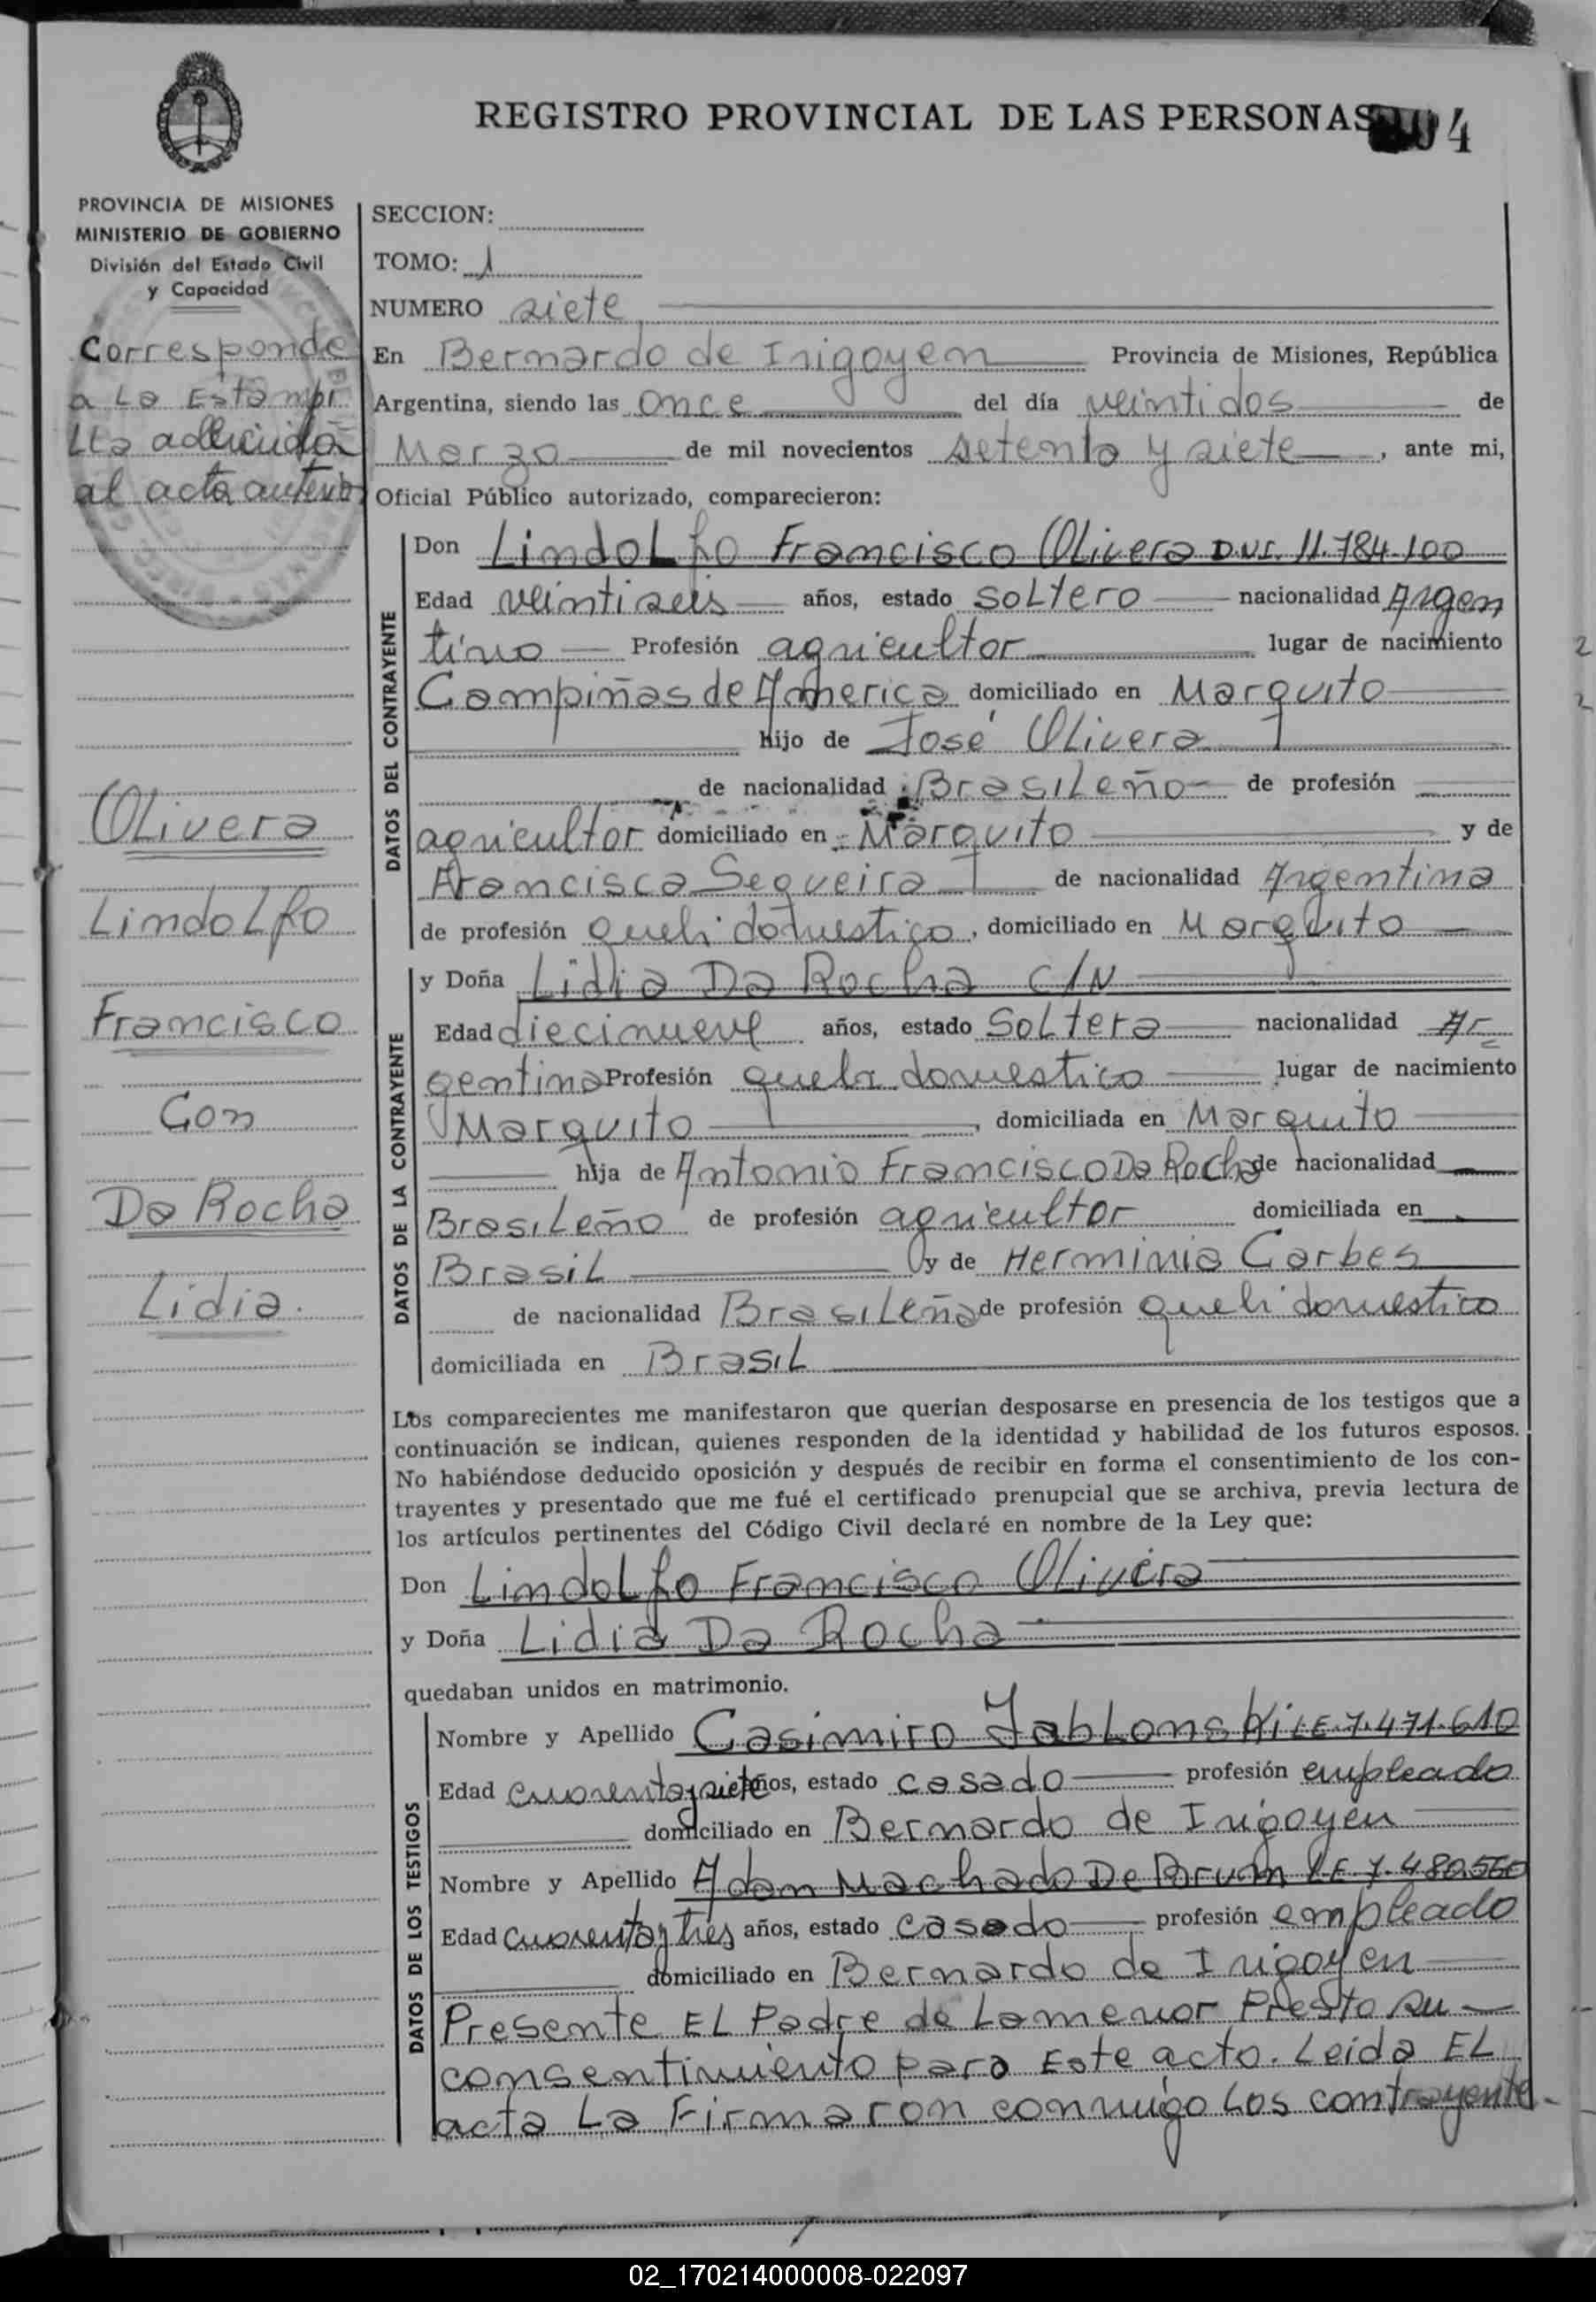 REGISTRO PROVINCIAL DE LAS PERSONAS 04
PROVINCIA DE MISIONES
MINISTERIO DE GOBIERNO
División del Estado Civil
y Capacidad
Corresponde
a La Estampi
LLa adherida
al acta anterior
Olivera
Lindolfo
Francisco
Con
Da Rocha
Lidia.
SECCION:
TOMO: 1
NUMERO siete
En Bernardo de Irigoyen Provincia de Misiones, República
Argentina, siendo las once del día veintidos de
Marzo de mil novecientos setenta y siete, ante mi,
Oficial Público autorizado, comparecieron:
DATOS DEL CONTRAYENTE
Don Lindolfo Francisco Olivera D.N.I. 11.784.100
Edad veintiseis años, estado soltero nacionalidad Argen
tino Profesión agricultor lugar de nacimiento
Campiñas de America domiciliado en Marquito
hijo de José Olivera
de nacionalidad Brasileño de profesión
agricultor domiciliado en Marquito y de
Francisca Sequeira de nacionalidad Argentina
de profesión queh. domestico, domiciliado en Marquito
DATOS DE LA CONTRAYENTE
y Doña Lidia Da Rocha C/N
Edad diecinueve años, estado Soltera nacionalidad Ar
gentina Profesión queh. domestico lugar de nacimiento
Marquito, domiciliada en Marquito
hija de Antonio Francisco Da Rocha de nacionalidad
Brasileño de profesión agricultor domiciliada en
Brasil y de Herminia Carbes
de nacionalidad Brasileña de profesión queh. domestico
domiciliada en Brasil
Los comparecientes me manifestaron que querían desposarse en presencia de los testigos que a
continuación se indican, quienes responden de la identidad y habilidad de los futuros esposos.
No habiéndose deducido oposición y después de recibir en forma el consentimiento de los con-
trayentes y presentado que me fué el certificado prenupcial que se archiva, previa lectura de
los artículos pertinentes del Código Civil declaré en nombre de la Ley que:
Don Lindolfo Francisco Olivera
y Doña Lidia Da Rocha
quedaban unidos en matrimonio.
DATOS DE LOS TESTIGOS
Nombre y Apellido Casimiro Jablonski L.E. 7.471.610
Edad cuarenta y siete años, estado casado profesión empleado
domiciliado en Bernardo de Irigoyen
Nombre y Apellido Adan Machado De Brum L.E. 7.480.560
Edad cuarenta y tres años, estado casado profesión empleado
domiciliado en Bernardo de Irigoyen
Presente EL Padre de La menor Presto su
consentimiento para Este acto. Leida EL
acta La Firmaron conmigo Los contrayente.
02_170214000008-022097